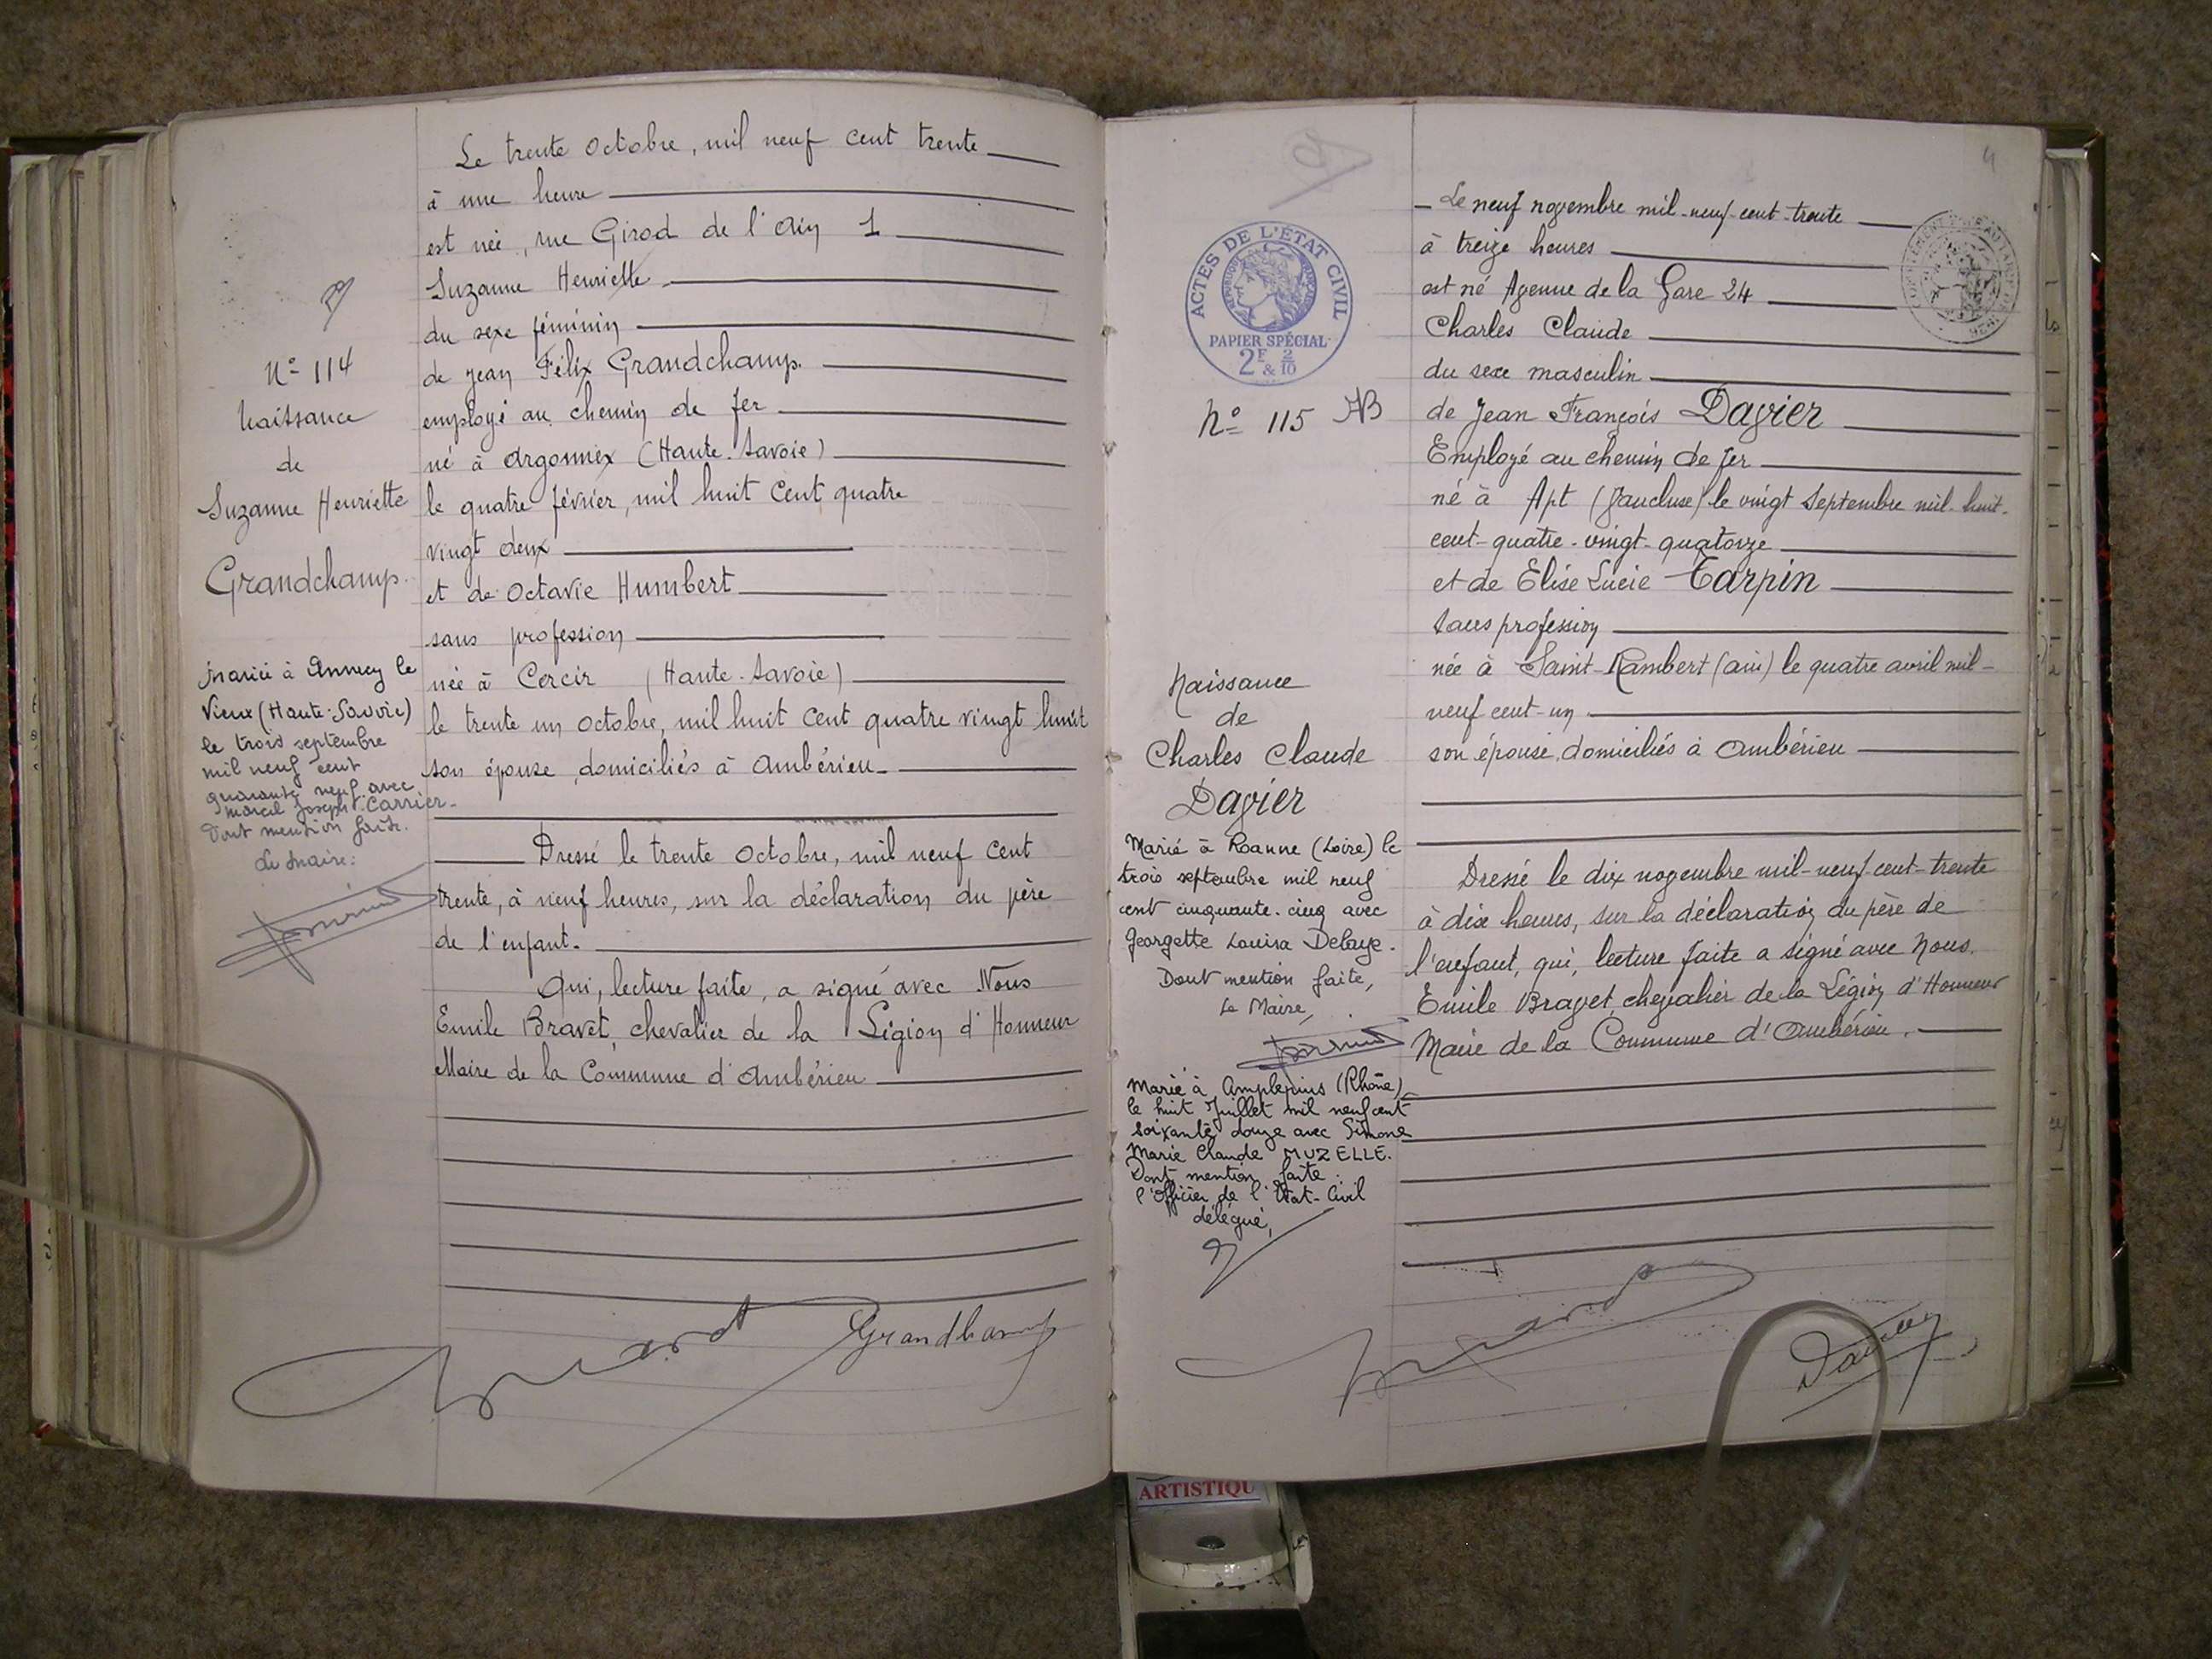 Nº 114
Naissance
de
Suzanne Henriette
Grandchamp.
Marié à Annecy le
Vieux (Haute-Savoie)
le trois septembre
mil neuf cent
quarante neuf avec
Marcel Joseph Carrier-
Dont mention faite.
Le Maire:
Le trente Octobre, mil neuf cent trente
à une heure
est née, rue Girod de l'Ain 1
Suzanne Henriette
du sexe féminin
de Jean Félix Grandchamp.
employé au chemin de fer
né à Argonnex (Haute-Savoie)
le quatre février, mil huit cent quatre
vingt deux
et de Octavie Humbert
sans profession
née à Cercir (Haute-Savoie)
le trente un octobre, mil huit cent quatre vingt huit
son épouse, domiciliés à Ambérieu
Dressé le trente Octobre, mil neuf cent
trente, à neuf heures, sur la déclaration du père
de l'enfant.
Qui, lecture faite, a signé avec Nous
Emile Bravet, chevalier de la Légion d'Honneur
Maire de la Commune d'Ambérieu
Grandchamp
4
ACTES DE L'ÉTAT CIVIL
PAPIER SPÉCIAL
2F & 2/10
Nº 115 AB
Naissance
de
Charles Claude
Davier
Marié à Roanne (Loire) le
trois septembre mil neuf
cent cinquante-cinq avec
Georgette Louisa Delaye.
Dont mention faite,
Le Maire,
Marié à Amplepuis (Rhône)
le huit Juillet mil neuf cent
soixante douze avec Simone
Marie Claude MUZELLE.
Dont mention faite.
l'Officier de l'Etat-Civil
délégué,
Le neuf novembre mil-neuf-cent-trente
à treize heures
est né Avenue de la Gare 24
Charles Claude
du sexe masculin
de Jean François Davier
Employé au chemin de fer
né à Apt (Vaucluse) le vingt Septembre mil-huit-
cent-quatre-vingt-quatorze
et de Elise Lucie Tarpin
sans profession
née à Saint-Rambert (ain) le quatre avril mil-
neuf cent-un
son épouse, domiciliés à Ambérieu
Dressé le dix novembre mil-neuf-cent-trente
à dix heures, sur la déclaration du père de
l'enfant, qui, lecture faite a signé avec Nous.
Emile Bravet, chevalier de la Légion d'Honneur
Maire de la Commune d'Ambérieu.
ARTISTIQU